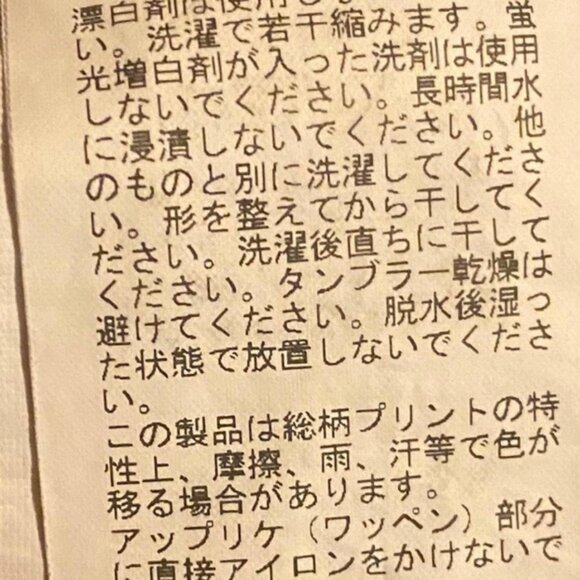 漂白剤は使用し
い。洗濯で若干縮みます。蛍
光増白剤が入った洗剤は使用
しないでください。長時間水
に浸漬しないでください。他
のものと別に洗濯してくださ
い。形を整えてから干してく
ださい。洗濯後直ちに干して
ください。タンブラー乾燥は
避けてください。脱水後湿っ
た状態で放置しないでくださ
い。
この製品は総柄プリントの特
性上、摩擦、雨、汗等で色が
移る場合があります。
アップリケ（ワッペン）部分
に直接アイロンをかけないで